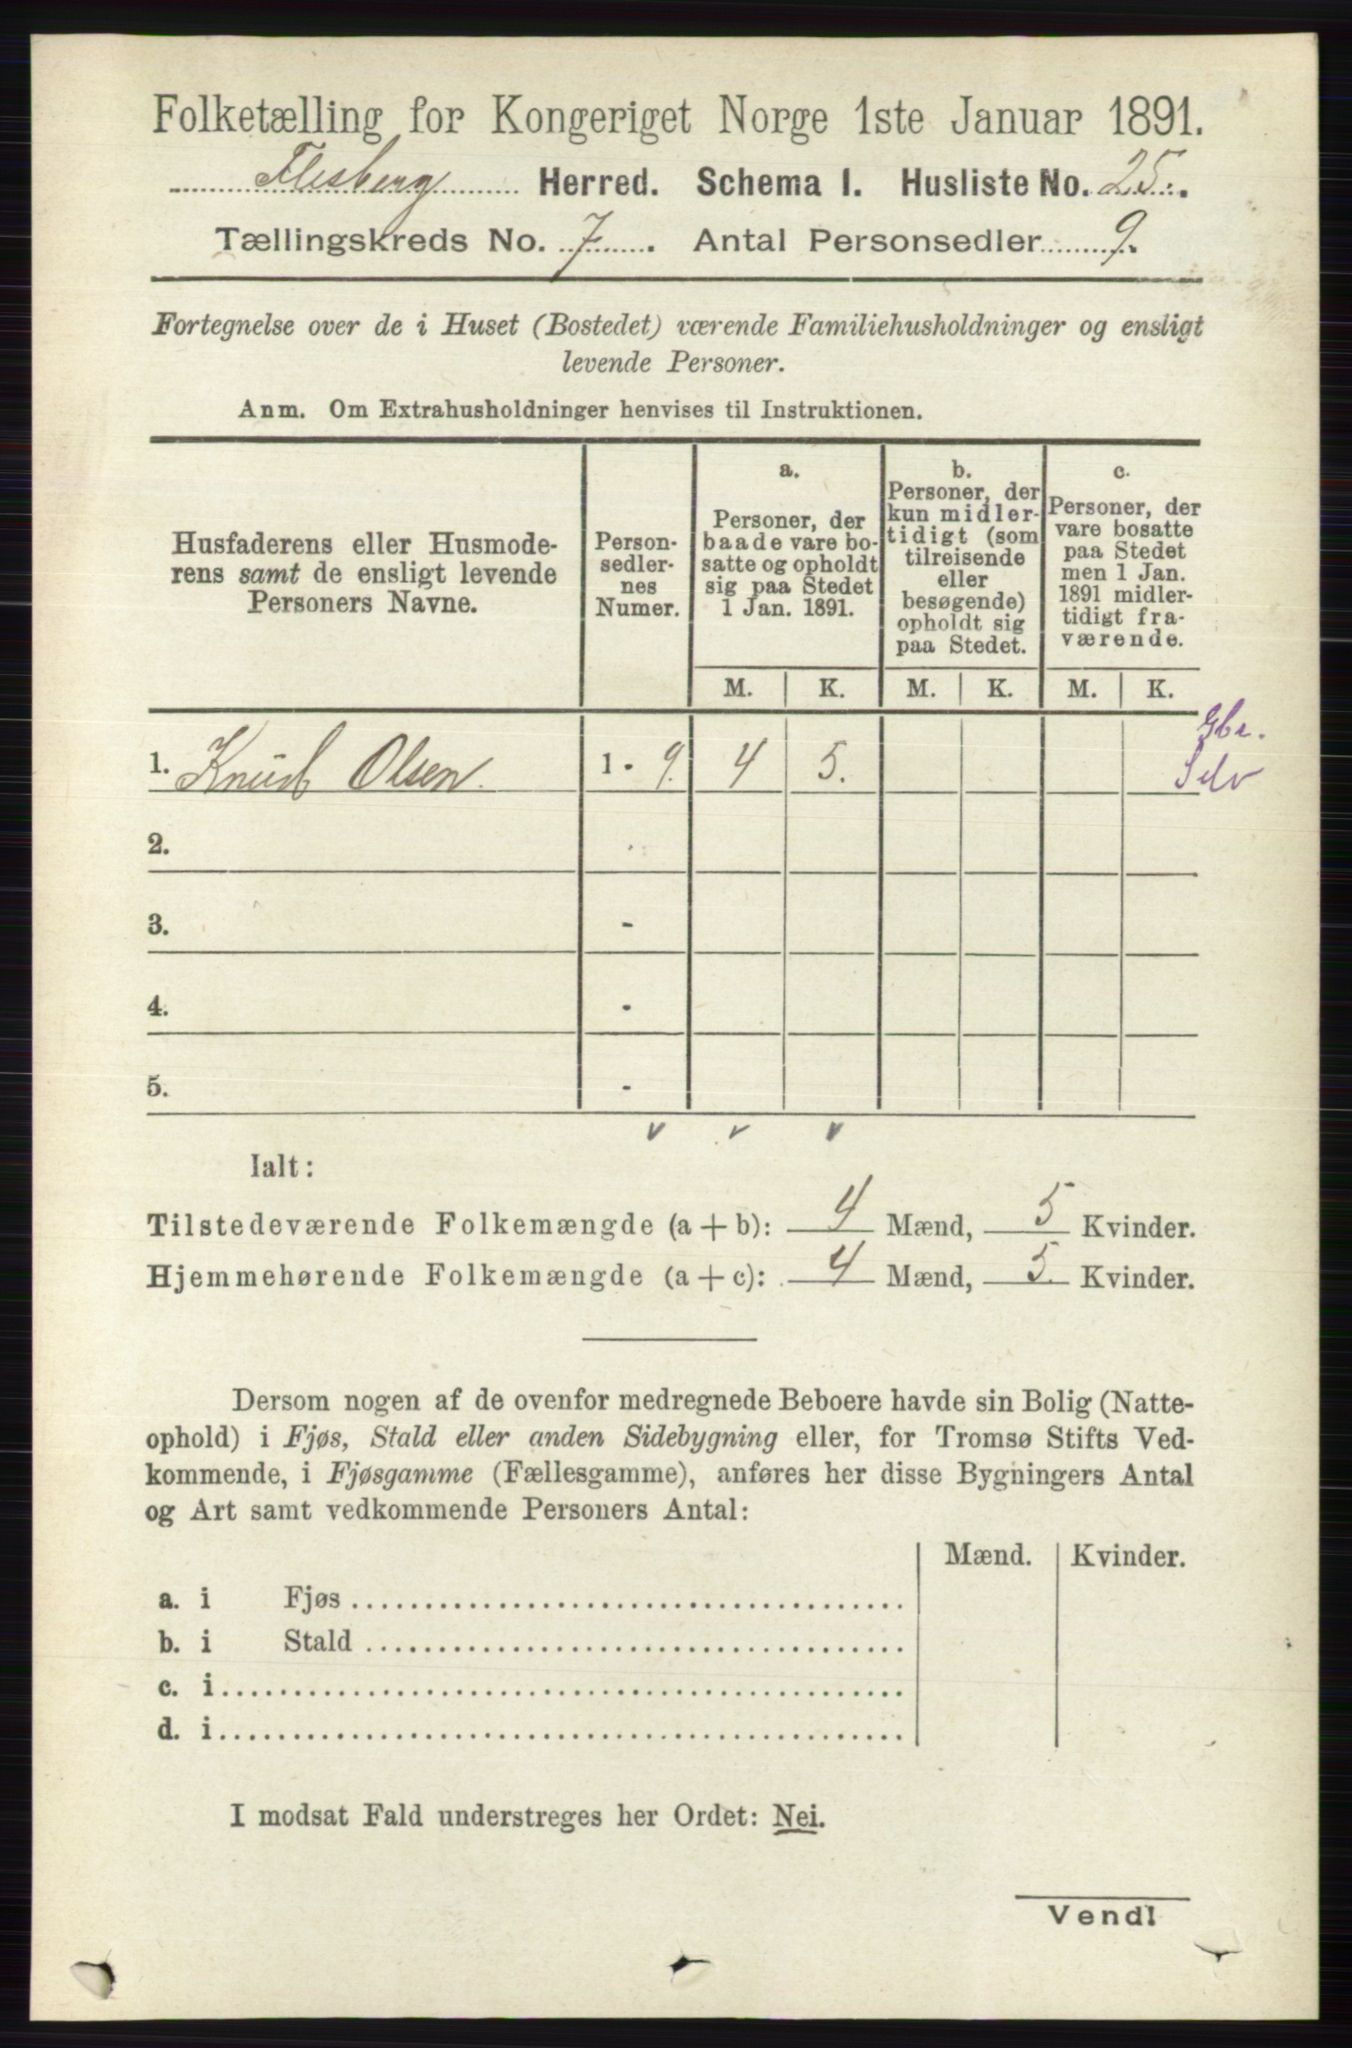 Folketælling for Kongeriget Norge 1ste Januar 1891.
Flesberg Herred. Schema I. Husliste No. 25.
Tællingskreds No. 7. Antal Personsedler 9.
Fortegnelse over de i Huset (Bostedet) værende Familiehusholdninger og ensligt
levende Personer.
Anm. Om Extrahusholdninger henvises til Instruktionen.
Husfaderens eller Husmode-
rens samt de ensligt levende
Personers Navne.
Person-
sedler-
nes
Numer.
a.
Personer, der
baade vare bo-
satte og opholdt
sig paa Stedet
1 Jan. 1891.
b.
Personer, der
kun midler-
tidigt (som
tilreisende
eller
besøgende)
opholdt sig
paa Stedet.
c.
Personer, der
vare bosatte
paa Stedet
men 1 Jan.
1891 midler-
tidigt fra-
værende.
M. K. M. K. M. K.
Gbr.
Selv
1. Knud Olsen. 1 - 9. 4 5.
2.
3. -
4. -
5. -
Ialt:
Tilstedeværende Folkemængde (a + b): 4 Mænd, 5 Kvinder.
Hjemmehørende Folkemængde (a + c): 4 Mænd, 5. Kvinder.
Dersom nogen af de ovenfor medregnede Beboere havde sin Bolig (Natte-
ophold) i Fjøs, Stald eller anden Sidebygning eller, for Tromsø Stifts Ved-
kommende, i Fjøsgamme (Fællesgamme), anføres her disse Bygningers Antal
og Art samt vedkommende Personers Antal:
Mænd. Kvinder.
a. i Fjøs
b. i Stald
c. i
d. i
I modsat Fald understreges her Ordet: Nei.
Vend!